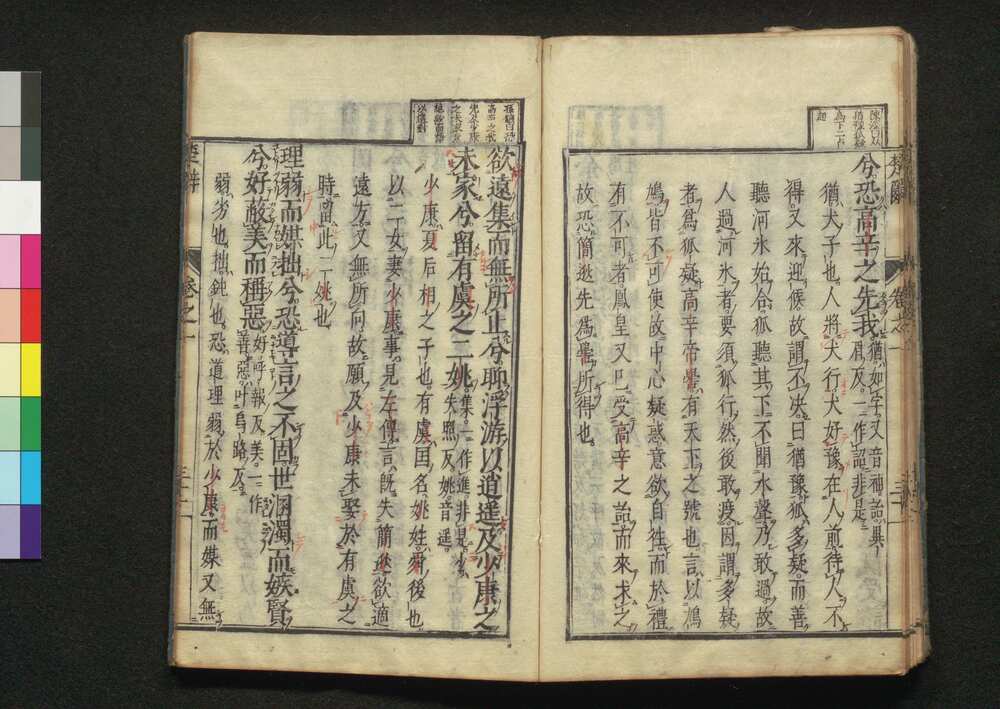 兮恐高辛之先我猶如字又音柚詒異
眉反一作詔非是
猶犬子也人將犬行犬好豫在人前待人不
得又來迎候故謂不決曰猶豫狐多疑而善
聽河氷始合狐聽其下不聞水聲乃敢過故
人過河氷者要須狐行然後敢渡因謂多疑
者爲狐疑高辛帝嚳有天下之號也言以鴆
鳩皆不可使故中心疑惑意欲自徃而於禮
有不可者鳳皇又巳受高辛之詒而來求之
故恐簡逖先爲嚳所得也
楚辭 卷之一
欲遠集而無所止兮聊浮游以逍遥及少康之
未家兮留有虞之二姚集一作進非是少
失照反姚音遥
少康夏后相之子也有虞国名姚姓舜後也
以二女妻少康事見左傳言旣失簡逖欲適
遠方又無所向故願及少康未娶於有虞之
時留此二姚也
理弱而媒拙兮恐導言之不固世溷濁而嫉賢
兮好蔽美而稱惡好呼報反美一作
善惡叶烏路反
弱劣也拙鈍也恐道理弱於少康而媒又無
楚辭 卷之一